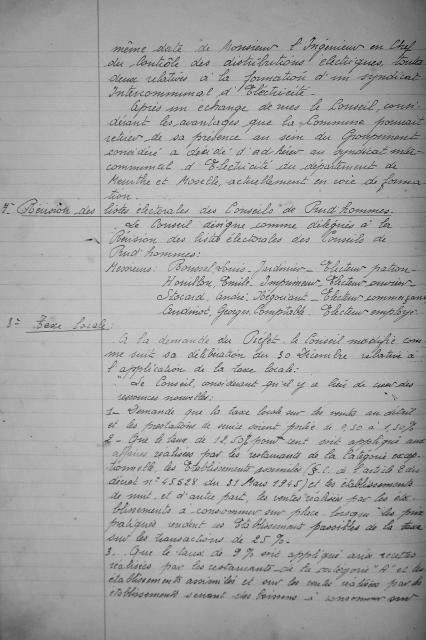 même date de Monsieur l'Ingénieur en Chef
du Contrôle des distributions électriques, toutes
deux relatives à la formation d'un syndicat
Intercommunal d'Electricité.
Après un échange de vues le Conseil, consi-
dérant les avantages que la Commune pourrait
retirer de sa présence au sein du Groupement
considéré a décidé d'adhérer au syndicat inter-
communal d'Electricité du département de
Meurthe et Moselle, actuellement en voie de forma-
tion.
7° Révision des listes électorales des Conseils de Prud'hommes.
Le Conseil désigne comme délégués à la
Révision des listes électorales des Conseils de
Prud'hommes:
Messieurs: Louis, Jardinier - Electeur patron
Houillon, Emile, Imprimeur - Electeur ouvrier
Stocard, André, Négociant - Electeur commerçant
Cardinot, Georges, Comptable - Electeur employé
8° Taxe locale:
A la demande du Préfet, le Conseil modifie com-
me suit sa délibération du 30 Décembre relative à
l'application de la taxe locale:
"Le Conseil, considérant qu'il y a lieu de créer des
ressources nouvelles:
1- Demande que la taxe locale sur les ventes au détail
et les prestations de service soient portée de 0,50 à 1,50%
2- Que le taux de 12,50 pour cent soit appliqué aux
affaires réalisées par les restaurants de la Catégorie excep-
tionnelle, les Etablissements assimilés (§.C. de l'article 2 du
décret n° 45528 du 31 Mars 1945) et les établissements
de nuit, et d'autre part, les ventes réalisées par les éta-
blissements à consommer sur place lorsque les prix
pratiqués rendent ces Etablissement passibles de la taxe
sur les transactions de 25%.
3. Que le taux de 9% soit appliqué aux recettes
réalisées par les restaurants de la catégorie "A" et les
établissements assimilés et sur les ventes réalisées par les
établissements servant des boissons à consommer sur